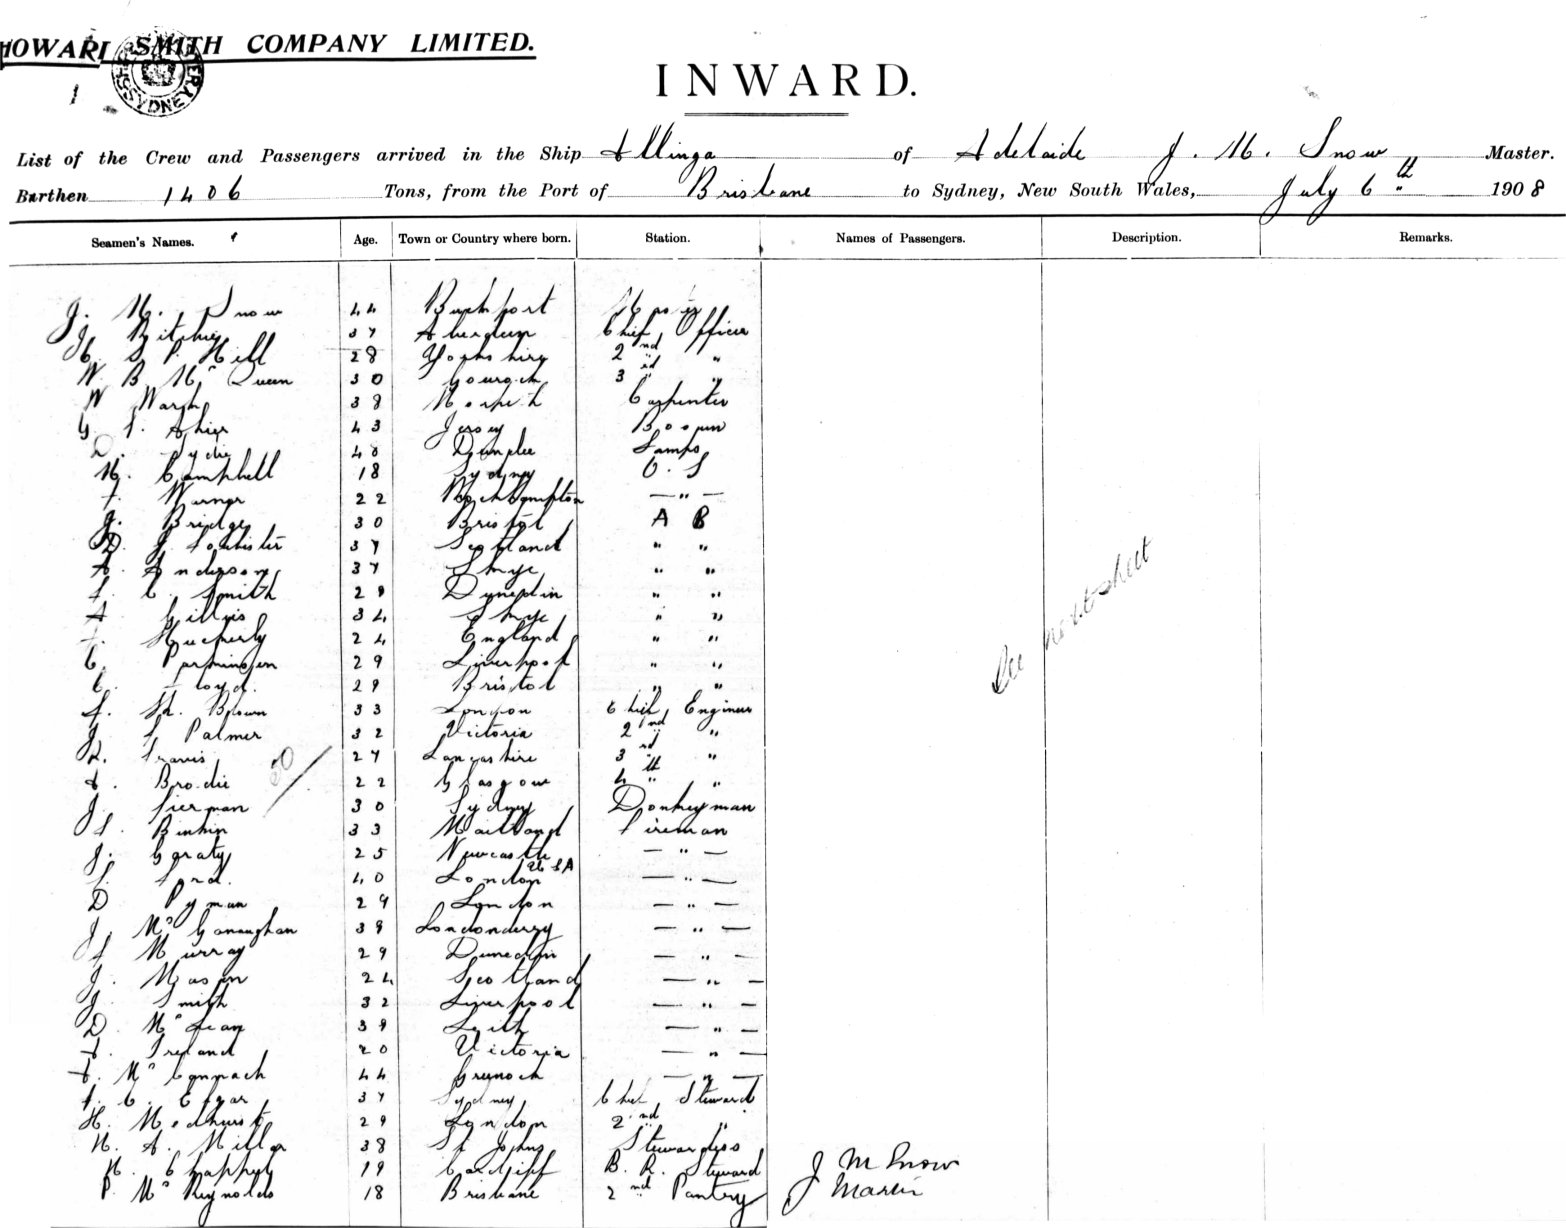 HOWARD SMITH COMPANY LIMITED.
SYDNEY
1
INWARD.
List of the Crew and Passengers arrived in the Ship Allinga of Adelaide J. M. Snow Master.
Burthen 1406 Tons, from the Port of Brisbane to Sydney, New South Wales, July 6th 1908
Seamen's Names. Age. Town or Country where born. Station. Names of Passengers. Description. Remarks.
J. M. Snow 44 Buckport Master
J. Ritchie 37 Aberdeen Chief Officer
S. P. Hill 28 Yorkshire 2nd "
W. B. McQueen 30 Gourock 3rd "
W Warh 38 Morpeth Carpenter
G. F. Ahier 43 Jersey Bosun
D. Sydie 48 Dundee Lamps
M. Campbell 18 Sydney O. S
F. Warner 22 Rockhampton — " —
J. Bridge 30 Bristol A B
D. J. Forbister 37 Scotland " "
A. Anderson 37 Skye " "
F. C. Smith 29 Dunedin " "
A Gillis 34 Skye " "
F. 24 England " "
C. Parkinson 29 Liverpool " "
C. Floyd. 29 Bristol " "
F. H. Brown 33 London Chief Engineer
J. F. Palmer 32 Victoria 2nd "
R. Travis 27 Lancashire 3rd "
A. Brodie 22 Glasgow 4th "
J. Sierman 30 Sydney Donkeyman
F. Binkin 33 Maitland Fireman
J. Geraty 25 Newcastle — " —
F. Ford. 40 London — " —
D Pyman 29 London — " —
J. McGonaughan 39 Londonderry — " —
F Murray 29 Dunedin — " —
J. Mason 24 Scotland — " —
J. Smith 32 Liverpool — " —
D. McLean 39 Leith — " —
A. Ireland 20 Victoria — " —
A. McCormack 44 Greenock — " —
F. C. Efgar 37 Sydney Chief Steward
H. Medhurst 29 London 2nd "
N. A. Miller 38 St Johns Stewardess
H. Chappell 19 Cardiff B. R. Steward
P. McReynolds 18 Brisbane 2nd Pantry
See next sheet
J M Snow
Master